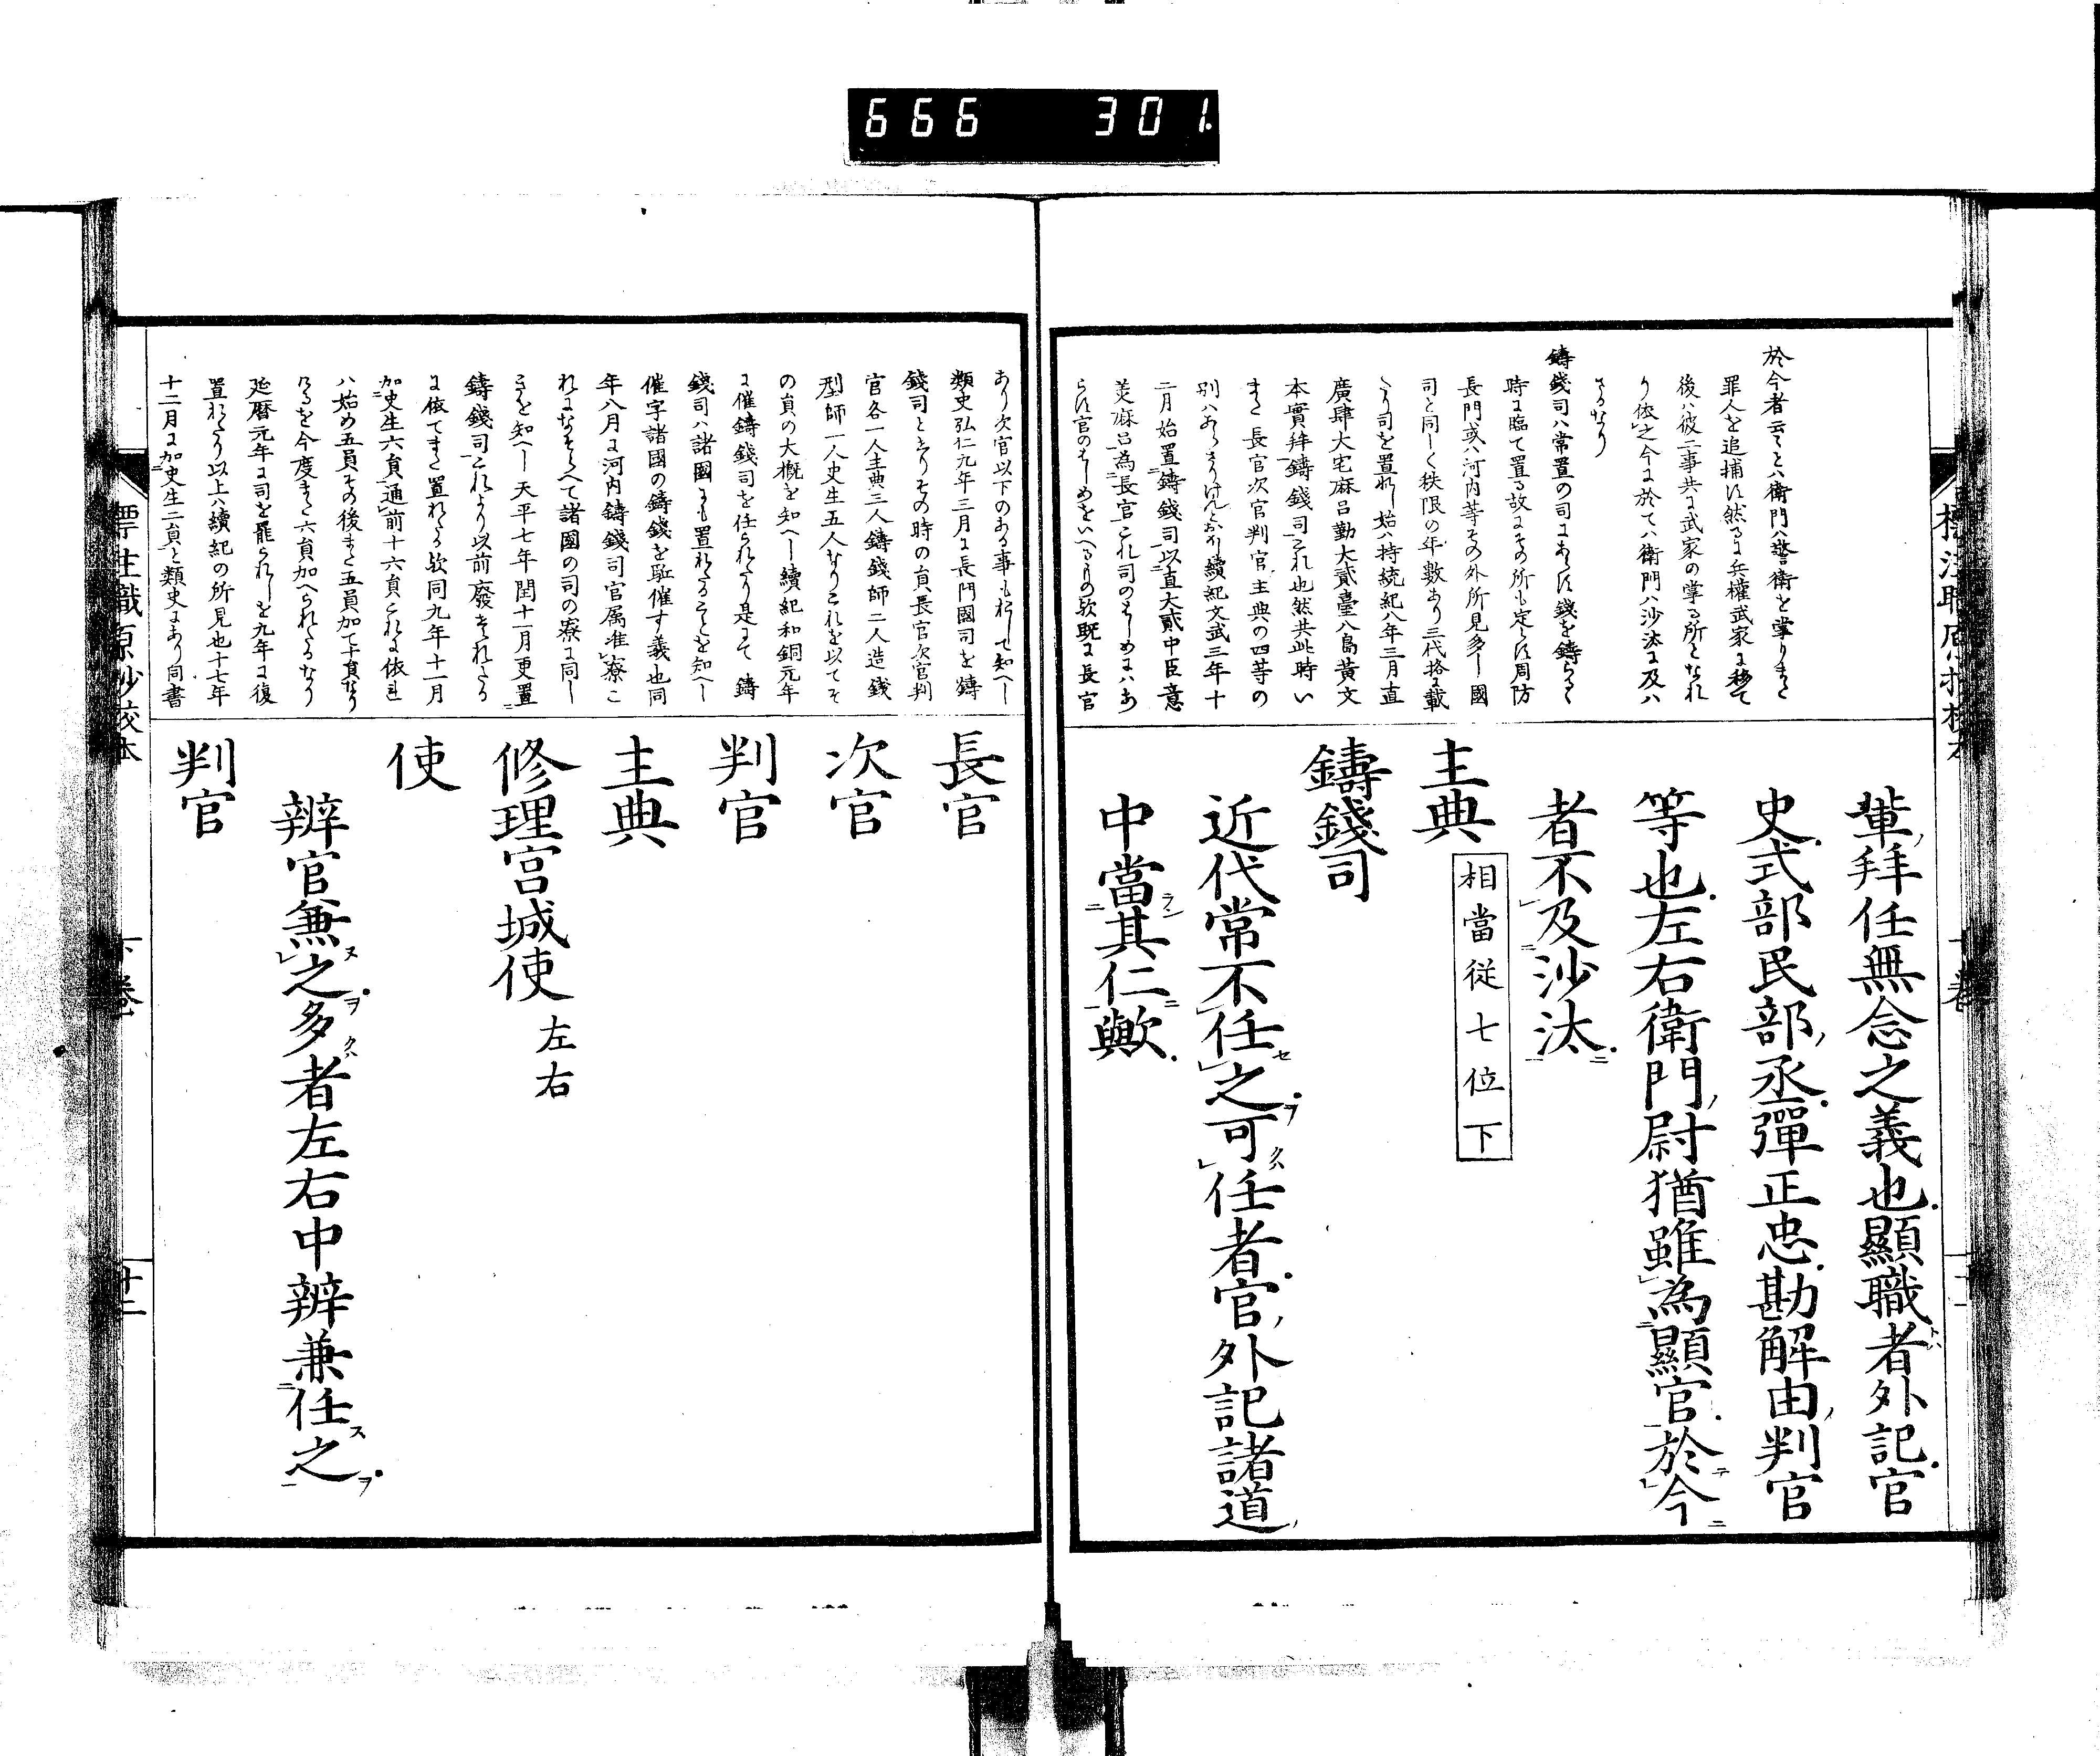 666 301
於今者云々とハ衛門ハ警衛を掌りまた
罪人を追捕に然るに兵權武家に移て
後ハ彼二事共に武家の掌る所となれ
り依之今に於てハ衛門ハ沙汰に及ハ
さるなり
鑄錢司ハ常置の司にあらに錢を鑄らるゝ
時に臨て置る故にその所も定らに周防
長門或ハ河内等その外所見多し國
司と同しく秩限の年數あり三代格に載
たり司を置れし始ハ持統紀八年三月直
廣肆大宅麻呂勤大貳臺八島黃文
本實拜鑄錢司これ也然共此時い
また長官次官判官主典の四等の
別ハあらさりけんとおほし續紀文武三年十
二月始置鑄錢司以直大貳中臣意
美麻呂為長官これ司のはしめにハあ
らに官のはしめをいへるもの歟既に長官
輩ノ拜任無念之義也顯職トハ者外記官
史式部民部ノ丞彈正忠勘解由ノ判官
等也左右衛門ノ尉猶雖為顯官於テ今ニ
者不及沙汰ニ
主典 相當從七位下
鑄錢司
近代常不任セ之ヲ可クハ任者官ノ外記諸道ノ
中當ラン其仁ニ歟
あり次官以下のある事も押して知へし
類史弘仁九年三月に長門國司を鑄
錢司となりその時の員長官次官判
官各一人主典三人鑄錢師二人造錢
型師一人史生五人なりこれを以てそ
の員の大概を知へし續紀和銅元年
に催鑄錢司を任られたり是にて鑄
錢司ハ諸國にも置れたることを知へし
催字諸國の鑄錢を耻催す義也同
年八月に河内鑄錢司官属准寮こ
れになそらへて諸國の司の寮に同し
きを知へし天平七年閏十一月更置
鑄錢司これより以前廢されたる
に依てまた置れたる歟同九年十一月
加史生六員通前十六員これに依れ
ハ始め五員その後また五員加て十員なり
しを今度また六員加へられたるなり
延曆元年に司を罷られしを九年に復
置れたり以上ハ續紀の所見也十七年
十二月に加史生二員と類史にあり同書
長官
次官
判官
主典
修理宮城使 左右
使
辨官兼ヌ之ヲ多クハ者左右中辨兼任ス之ヲ
判官
標注職原抄校本 下卷 廿二